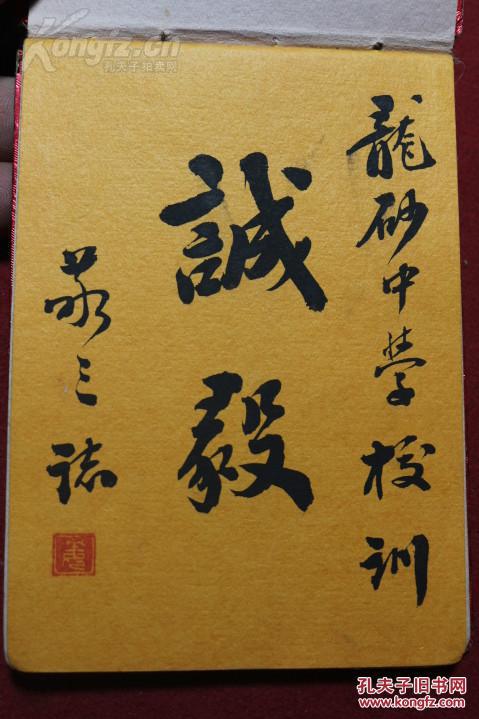 Kongfz.cn
孔夫子拍卖网
龍砂中學校訓
誠毅
三誌
孔夫子旧书网
www.kongfz.cn